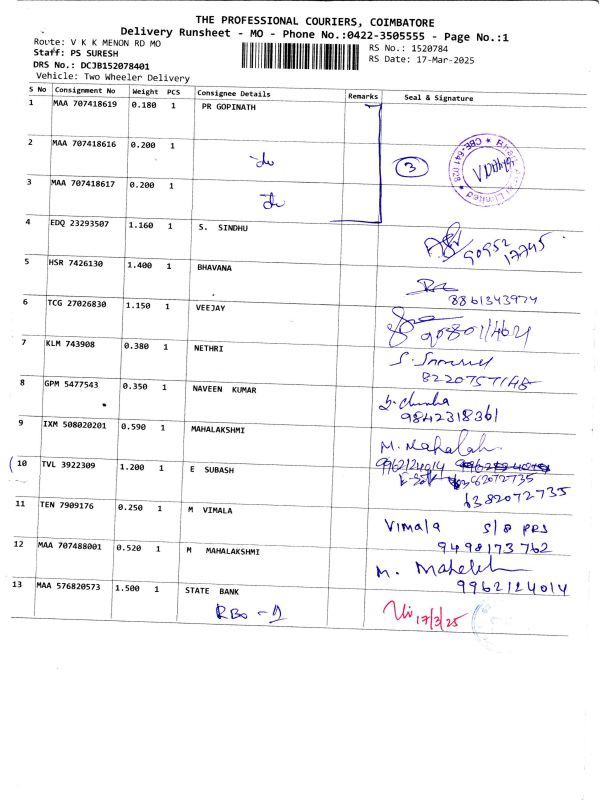 THE PROFESSIONAL COURIERS, COIMBATORE
Delivery Runsheet - MO - Phone No.:0422-3505555 - Page No.:1
Route: V K K MENON RD MO
Staff: PS SURESH
DRS No.: DCJB152078401
Vehicle: Two Wheeler Delivery
RS No.: 1520784
RS Date: 17-Mar-2025
S No Consignment No Weight PCS Consignee Details Remarks Seal & Signature
1 MAA 707418619 0.180 1 PR GOPINATH
2 MAA 707418616 0.200 1
3
CBE-641 028
Limited
3 MAA 707418617 0.200 1
4 EDQ 23293507 1.160 1 S. SINDHU
90952
17745
5 HSR 7426130 1.400 1 BHAVANA
8861343974
6 TCG 27026830 1.150 1 VEEJAY
7 KLM 743908 0.380 1 NETHRI
8220757148
8 GPM 5477543 0.350 1 NAVEEN KUMAR
9842318361
9 IXM 508020201 0.590 1 MAHALAKSHMI
M. Mahalah
9962124014
10 TVL 3922309 1.200 1 E SUBASH
6382072735
11 TEN 7909176 0.250 1 M VIMALA
Vimala
9498173762
12 MAA 707488001 0.520 1 M MAHALAKSHMI
9962124014
13 MAA 576820573 1.500 1 STATE BANK
17/3/25